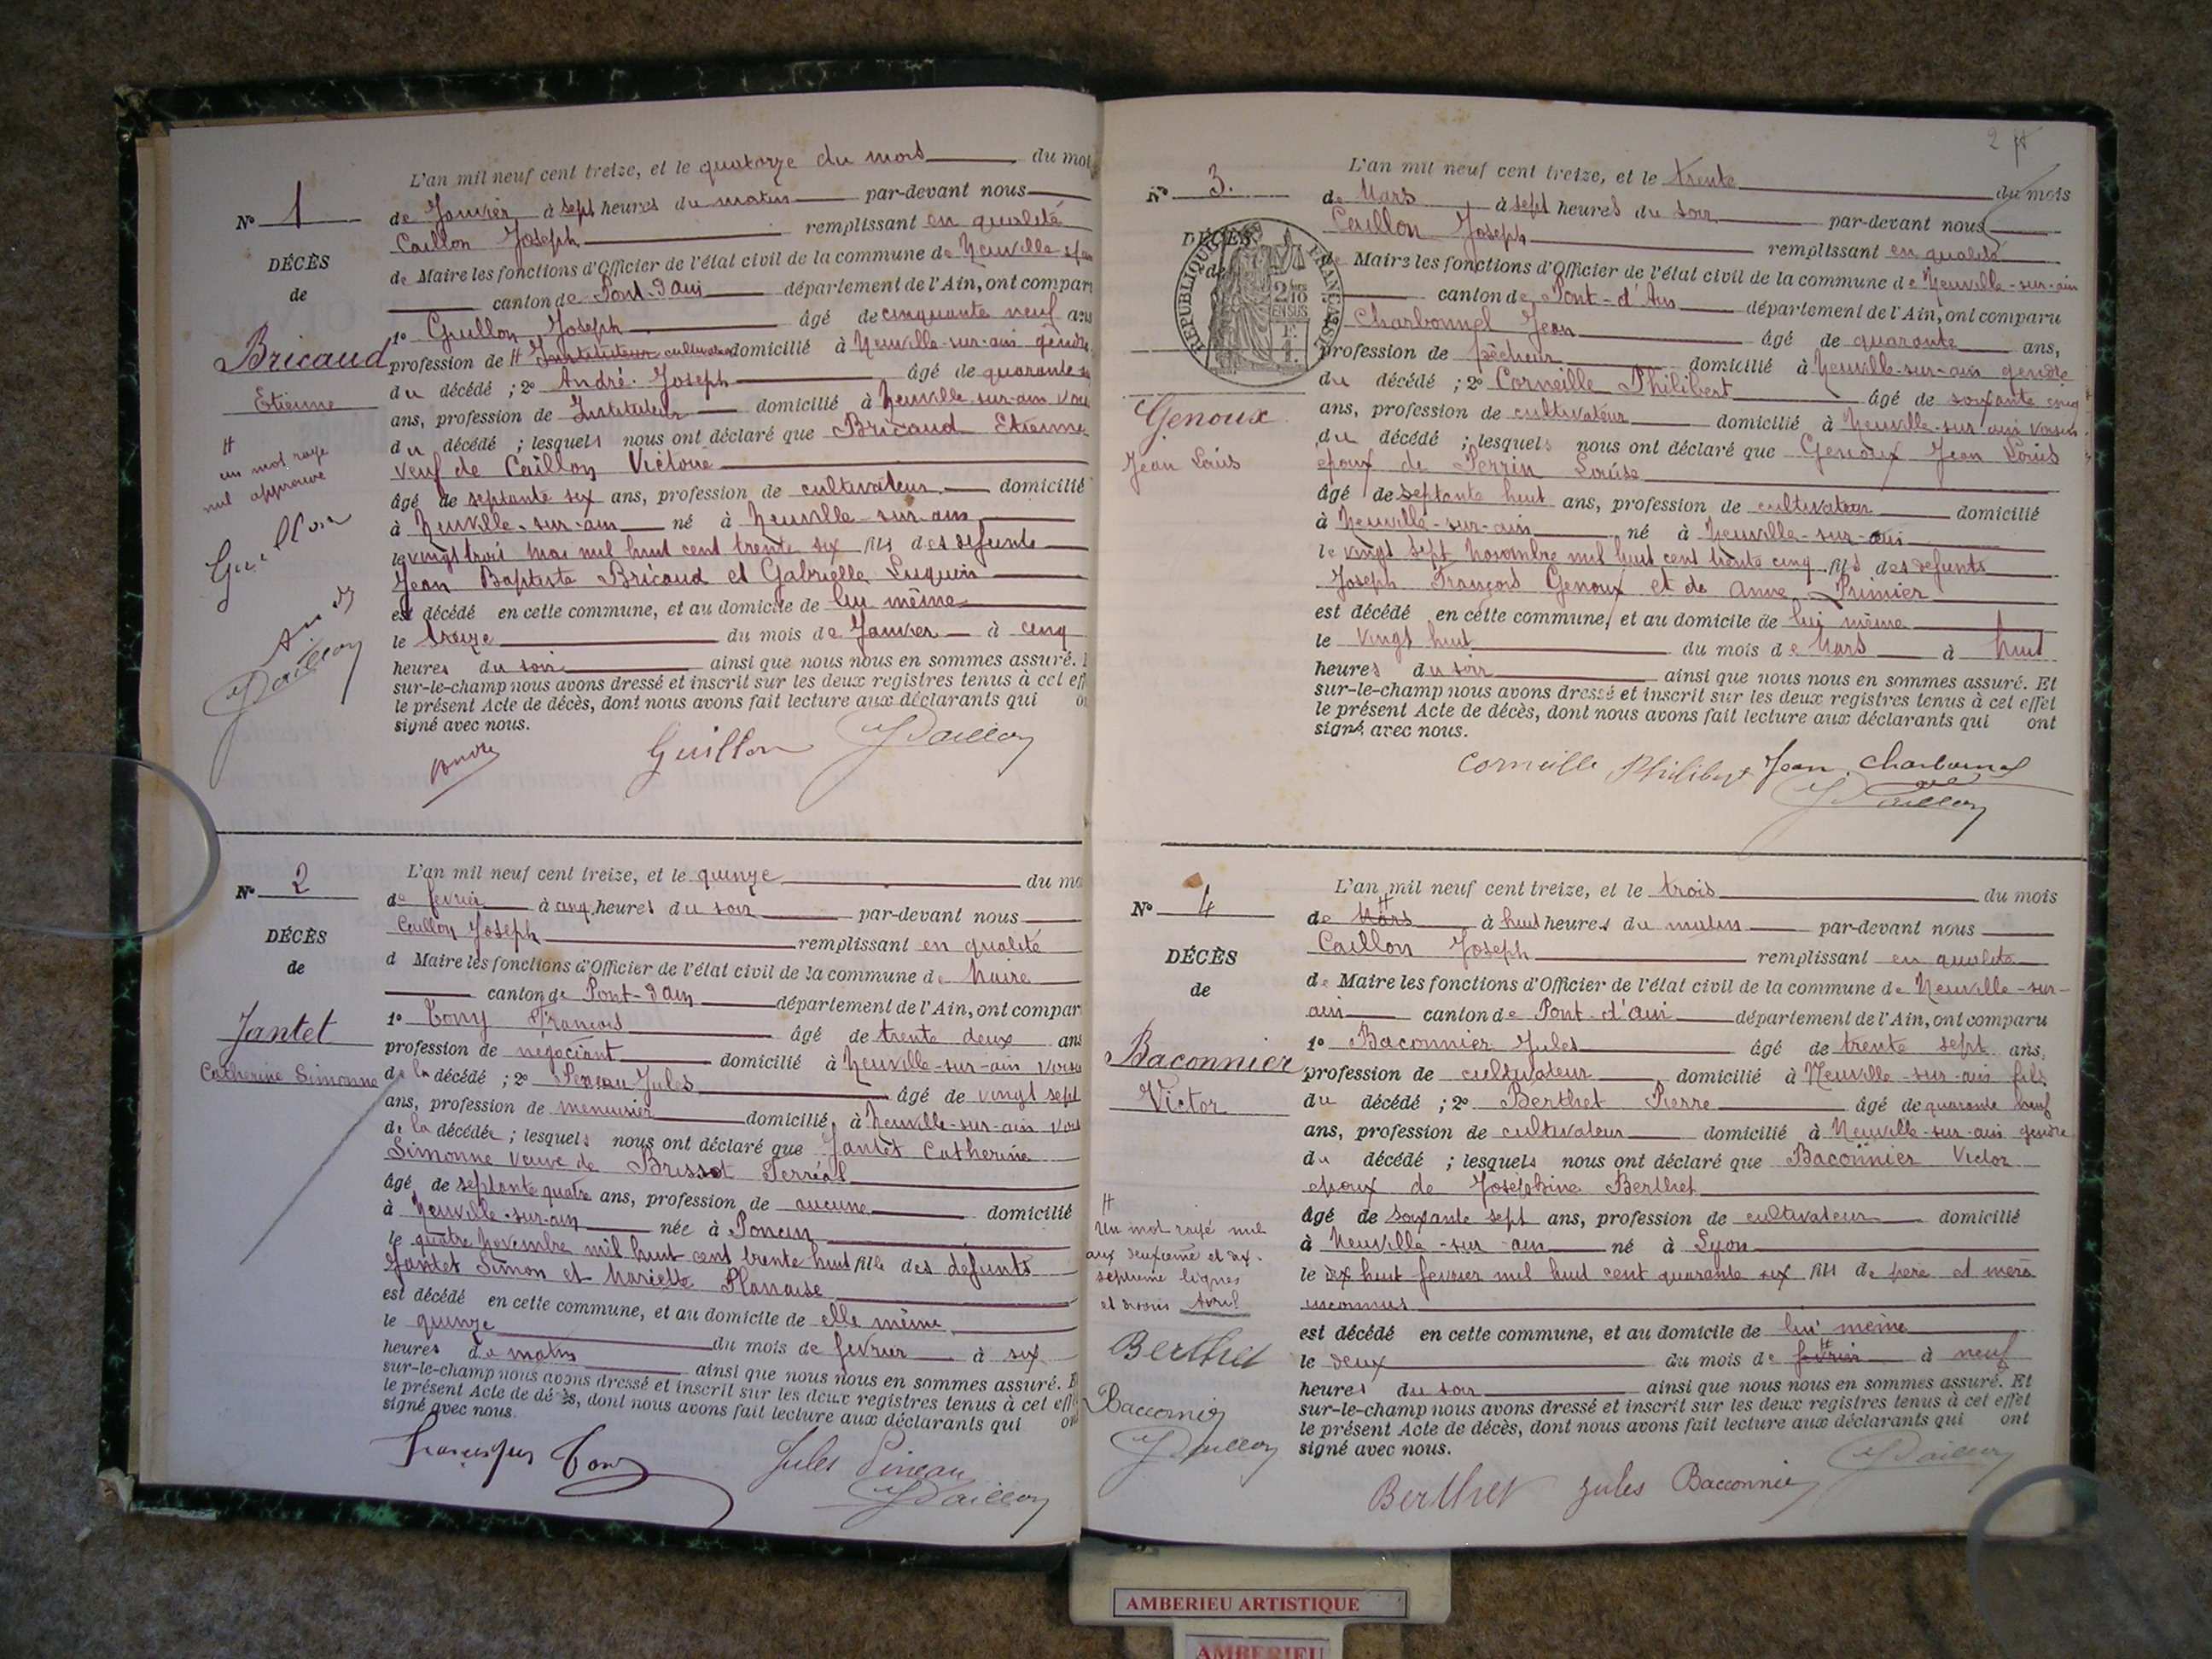 L'an mil neuf cent treize, et le quatorze du mois du moi
N° 1
de Janvier à sept heures du matin par-devant nous
Caillon Joseph remplissant en qualité
DÉCÈS
de Maire les fonctions d'Officier de l'état civil de la commune de Neuville s/
de
canton de Pont-d'Ain département de l'Ain, ont compar
1° Guillon Joseph âgé de cinquante neuf ans
Bricaud
profession de # Instituteur cultivateur domicilié à Neuville-sur-ain gendre
du décédé ; 2° André Joseph âgé de quarante
Etienne
ans, profession de Instituteur domicilié à Neuville-sur-ain
#
un mot rayé
nul approuvé
du décédé ; lesquels nous ont déclaré que Bricaud Etienne
veuf de Caillon Victoire
âgé de septante six ans, profession de cultivateur domicilié
Guillon
à Neuville-sur-ain né à Neuville-sur-ain
le vingt trois mai mil huit cent trente six fils des défunts
Jean Baptiste Bricaud et Gabrielle Luquin
André
est décédé en cette commune, et au domicile de lui même
JCaillon
le treize du mois de Janvier à cinq
heures du soir ainsi que nous nous en sommes assuré.
sur-le-champ nous avons dressé et inscrit sur les deux registres tenus à cet eff
le présent Acte de décès, dont nous avons fait lecture aux déclarants qui
signé avec nous.
André Guillon JCaillon
L'an mil neuf cent treize, et le quinze du mo
N° 2
de fevrier à cinq heures du soir par-devant nous
Caillon Joseph remplissant en qualité
DÉCÈS
d Maire les fonctions d'Officier de l'état civil de la commune de Maire
de
canton de Pont-d'ain département de l'Ain, ont compar
1° Tony François âgé de trente deux ans
Jantet
profession de négociant domicilié à Neuville-sur-ain
Catherine Simonne
de la décédé ; 2° Pineau Jules âgé de vingt sept
ans, profession de menuisier domicilié à Neuville-sur-ain
de la décédée ; lesquels nous ont déclaré que Jantet Catherine
Simonne veuve de Brissot Terréal
âgé de septante quatre ans, profession de aucune domicilié
à Neuville-sur-ain née à Poncin
le quatre Novembre mil huit cent trente huit fille des defunts
Jantet Simon et Mariette Planaise
est décédé en cette commune, et au domicile de elle même
le quinze du mois de fevrier à six
heures du matin ainsi que nous nous en sommes assuré.
sur-le-champ nous avons dressé et inscrit sur les deux registres tenus à cet eff
le présent Acte de décès, dont nous avons fait lecture aux déclarants qui
signé avec nous.
Jules Pineau
JCaillon
2
L'an mil neuf cent treize, et le trente du mois
N° 3.
de Mars à sept heures du soir par-devant nous
Caillon Joseph remplissant en qualité
DÉCÈS
de
RÉPUBLIQUE FRANÇAISE
2/10 EN SUS
de Maire les fonctions d'Officier de l'état civil de la commune de Neuville-sur-ain
canton de Pont-d'Ain département de l'Ain, ont comparu
Charbonnel Jean âgé de quarante ans,
profession de pêcheur domicilié à Neuville-sur-ain gendre
du décédé ; 2° Corneille Philibert âgé de soixante cinq
Genoux
ans, profession de cultivateur domicilié à Neuville-sur-ain voisin
du décédé ; lesquels nous ont déclaré que Genoux Jean Loüis
Jean Loüis
epoux de Perrin Louise
âgé de septante huit ans, profession de cultivateur domicilié
à Neuville-sur-ain né à Neuville-sur-ain
le vingt sept Novembre mil huit cent trente cinq fils des defunts
Joseph François Genoux et de Anne Primier
est décédé en cette commune, et au domicile de lui même
le vingt huit du mois de Mars à huit
heures du soir ainsi que nous nous en sommes assuré. Et
sur-le-champ nous avons dressé et inscrit sur les deux registres tenus à cet effet
le présent Acte de décès, dont nous avons fait lecture aux déclarants qui ont
signé avec nous.
Corneille Philibert Jean Charbonnel
JCaillon
L'an mil neuf cent treize, et le trois du mois
N° 4
de Mars à huit heures du matin par-devant nous
Caillon Joseph remplissant en qualité
DÉCÈS
de Maire les fonctions d'Officier de l'état civil de la commune de Neuville-sur-
de
ain canton de Pont-d'ain département de l'Ain, ont comparu
1° Baconnier Jules âgé de trente sept ans,
Baconnier
profession de cultivateur domicilié à Neuville-sur-ain fils
Victor
du décédé ; 2° Berthet Pierre âgé de quarante neuf
ans, profession de cultivateur domicilié à Neuville-sur-ain gendre
du décédé ; lesquels nous ont déclaré que Baconnier Victor
epoux de Joséphine Berthet
#
Un mot rayé nul
aux deuxieme et dix-
septieme lignes
et disons Avril
âgé de soixante sept ans, profession de cultivateur domicilié
à Neuville-sur-ain né à Lyon
le dix huit fevrier mil huit cent quarante six fils de pere et mere
inconnus
Berthet
est décédé en cette commune, et au domicile de lui même
le deux du mois de fevrier à neuf
Baconnier
heures du soir ainsi que nous nous en sommes assuré. Et
sur-le-champ nous avons dressé et inscrit sur les deux registres tenus à cet effet
le présent Acte de décès, dont nous avons fait lecture aux déclarants qui ont
JCaillon
signé avec nous.
Berthet Jules Baconnier JCaillon
AMBERIEU ARTISTIQUE
AMBERIEU